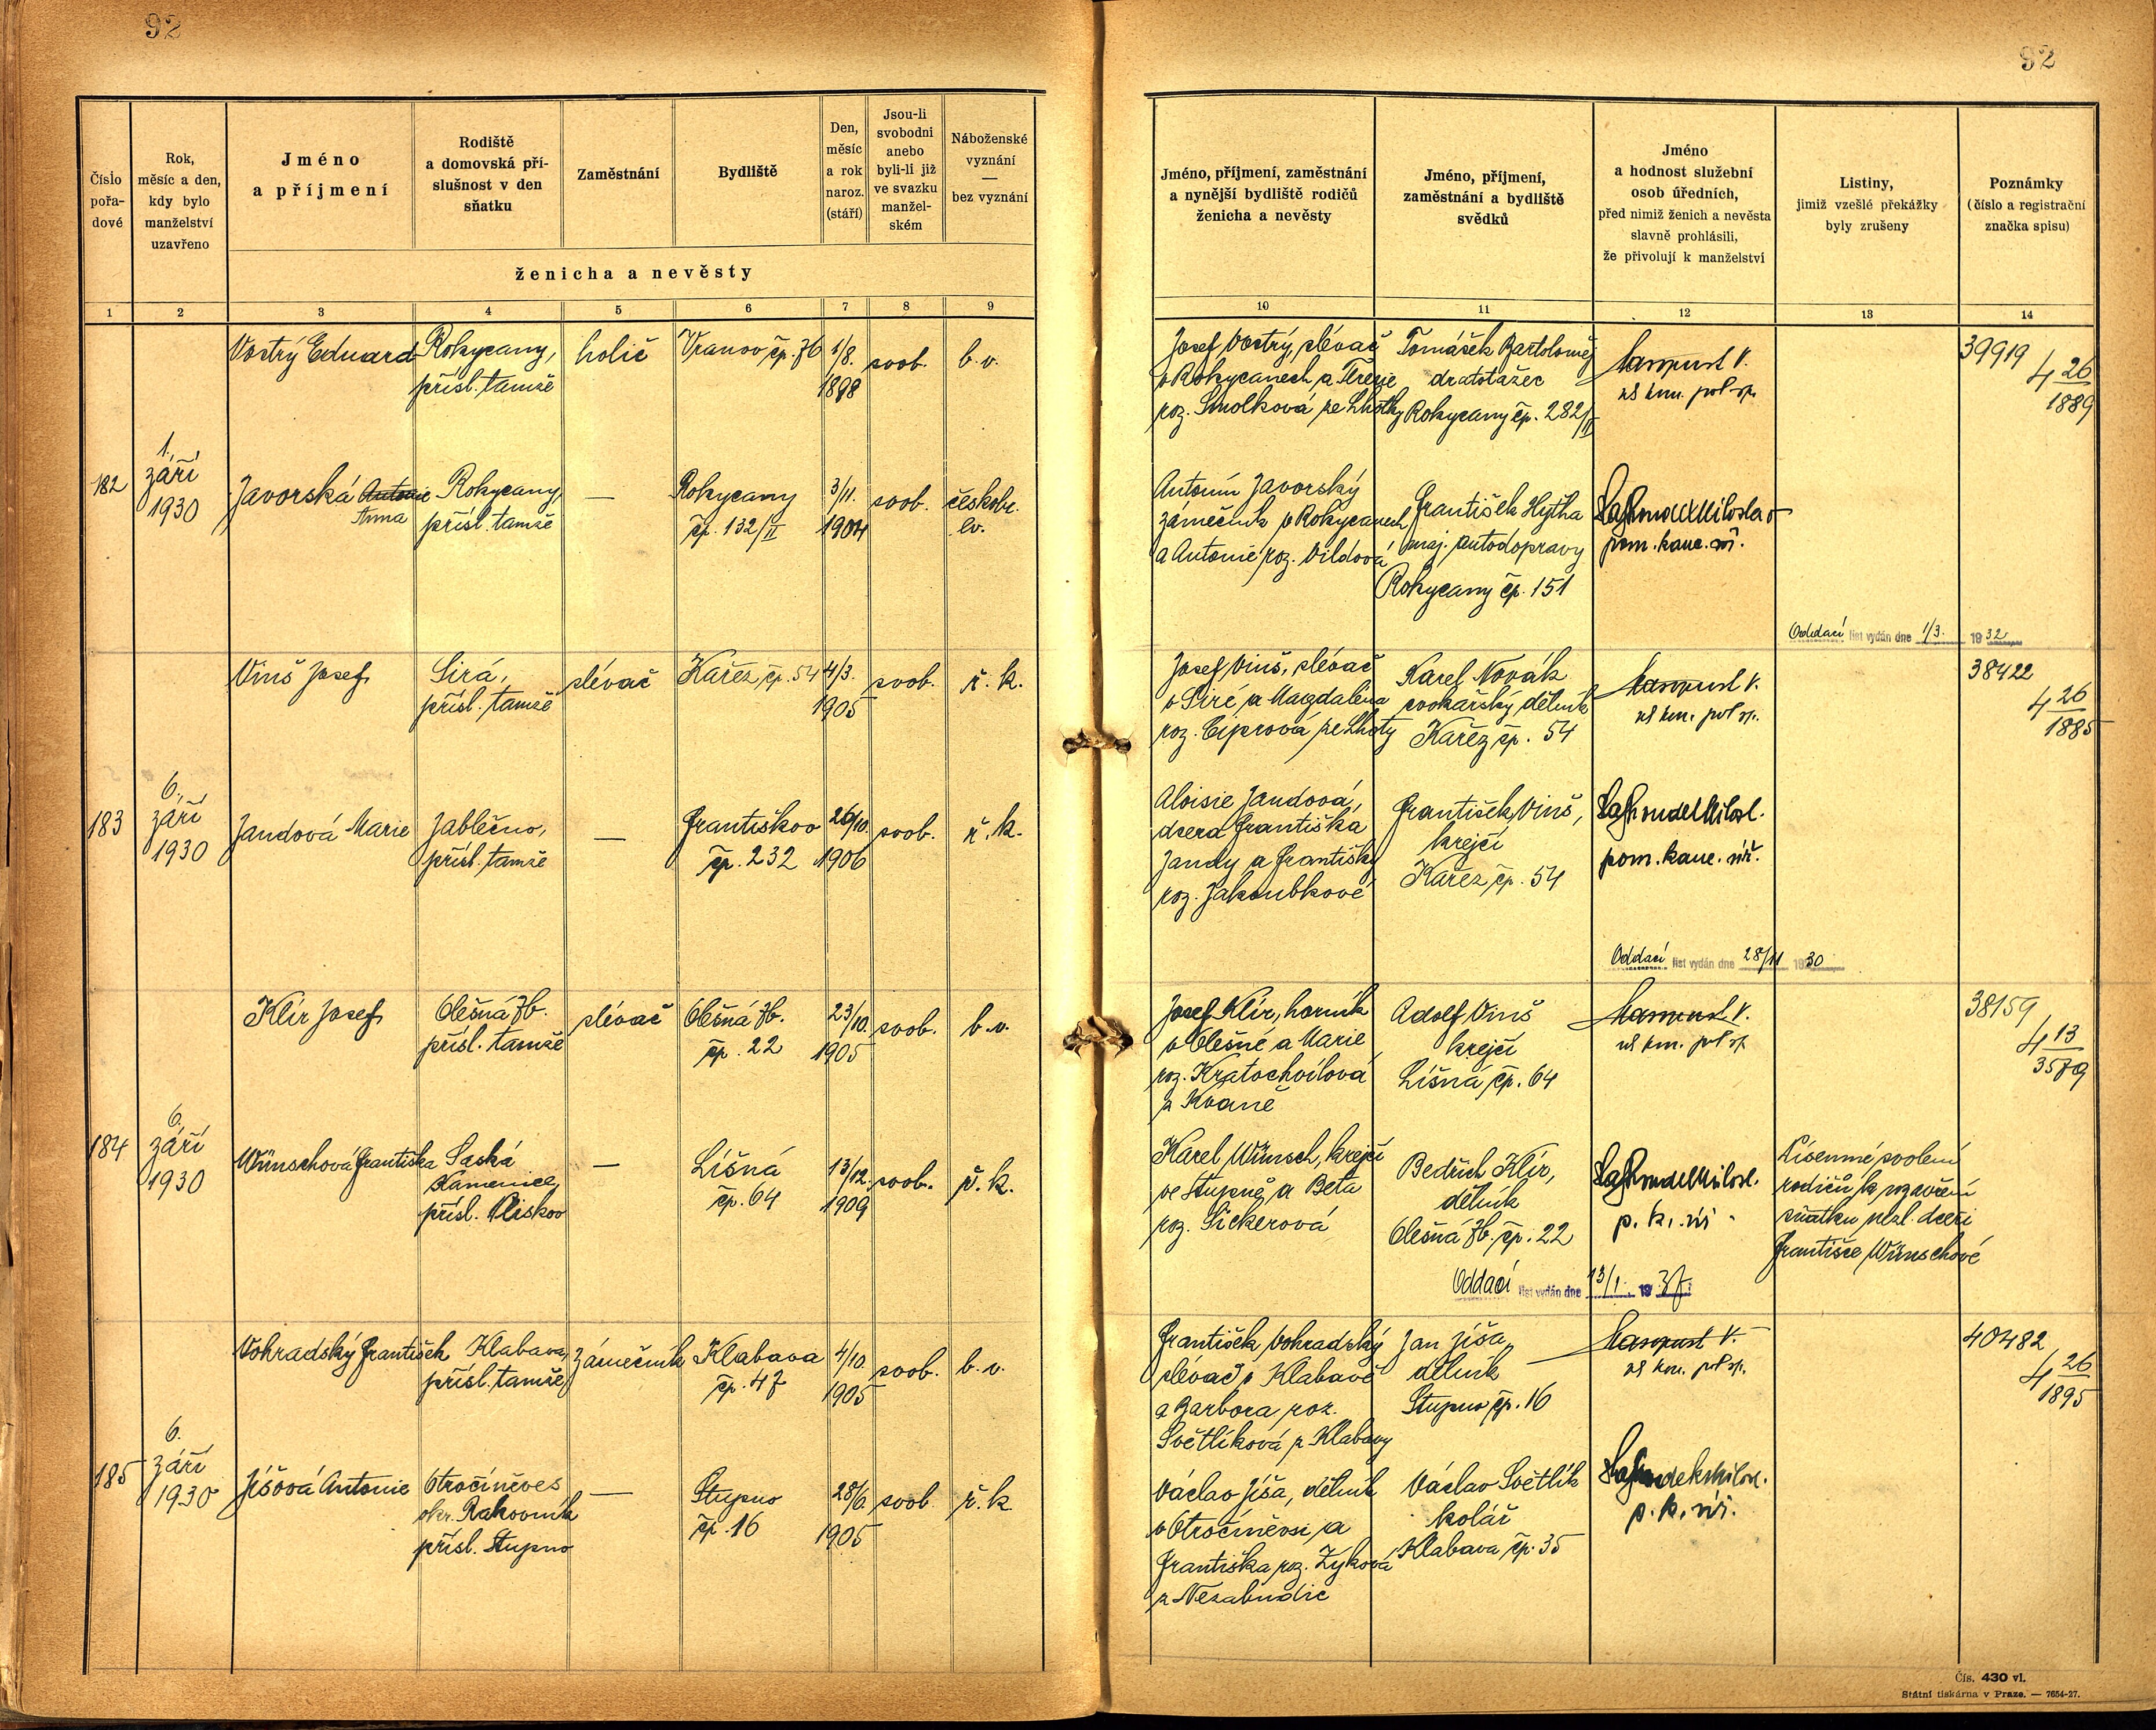 92
Číslo pořa- dové
Rok, měsíc a den, kdy bylo manželství uzavřeno
Jméno a příjmení
Rodiště a domovská pří- slušnost v den sňatku
Zaměstnání
Bydliště
Den, měsíc a rok naroz. (stáří)
Jsou-li svobodni anebo byli-li již ve svazku manžel- ském
Náboženské vyznání — bez vyznání
ženicha a nevěsty
1 2 3 4 5 6 7 8 9
Vostrý Eduard
Rokycany,
přísl. tamže
holič
Vranov čp. 76
1/8.
1898
svob.
b. v.
182
1.
září
1930
Javorská Antonie
Anna
Rokycany,
přísl. tamže
—
Rokycany
čp. 132/II
3/11.
1904
svob.
českobr.
ev.
Viniš Josef
Sirá,
přísl. tamže
slévač
Kařez, čp. 54
4/3.
1905
svob.
ř. k.
183
6.
září
1930
Jandová Marie
Jablečno,
přísl. tamže
—
Františkov
čp. 232
26/10.
1906
svob.
ř. k.
Klír Josef
Olešná Zb.
přísl. tamže
slévač
Olešná Zb.
čp. 22
23/10.
1905
svob.
b. v.
184
6.
září
1930
Wünschová Františka
Saská
Kamenice,
přísl. Pliskov
—
Líšná
čp. 64
13/12.
1909
svob.
ř. k.
Vohradský František
Klabava,
přísl. tamže
zámečník
Klabava
čp. 47
4/10.
1905
svob.
b. v.
185
6.
září
1930
Jíšová Antonie
Otročiněves
okr. Rakovník
přísl. Stupno
—
Stupno
čp. 16
28/6
1905
svob
ř. k
92
Jméno, příjmení, zaměstnání a nynější bydliště rodičů ženicha a nevěsty
Jméno, příjmení, zaměstnání a bydliště svědků
Jméno a hodnost služební osob úředních, před nimiž ženich a nevěsta slavně prohlásili, že přivolují k manželství
Listiny, jimiž vzešlé překážky byly zrušeny
Poznámky (číslo a registrační značka spisu)
10 11 12 13 14
Josef Vostrý, slévač
v Rokycanech a Terezie
roz. Smolková ze Lhotky
Tomášek Bartoloměj
dratotažec
Rokycany čp. 282/II
39919
4 26
1889
Antonín Javorský
zámečník v Rokycanech
a Antonie roz. Vildová
František Hytha
maj. autodopravy
Rokycany čp. 151
pom. kanc. úř.
Oddací list vydán dne 1/3. 1932
Josef Viniš, slévač
v Siré a Magdaléna
roz. Ciprová ze Lhoty
Karel Novák
cvokařský dělník
Kařez čp. 54
38422
4 26
1885
Aloisie Jandová,
dcera Františka
Jandy a Františky
roz. Jakoubkové
František Viniš,
krejčí
Kařez, čp. 54
pom. kanc. úř.
Oddací list vydán dne 28/11 1930
Josef Klír, horník
v Olešné a Marie
roz. Kratochvílová
z Kváně
Adolf Viniš
krejčí
Líšná čp. 64
38159
4 13
3579
Karel Wünsch, krejčí
ve Stupně, a Beta
roz. Sickerová
Bedřich Klír,
dělník
Olešná Zb. čp. 22
p. k. úř
Písemné svolení
rodičů k uzavření
sňatku nezl. dceři
Františce Wünschové
Oddací list vydán dne 13/1. 1937
František Vohradský
slévač v Klabavě
a Barbora roz.
Světlíková z Klabavy
Jan Jíša,
dělník
Stupno čp. 16
40482
4 26
1895
Václav Jíša, dělník
v Otročiněvsi a
Františka roz. Zyková
z Nezabudic
Václav Světlík
kolář
Klabava, čp. 35
p. k. úř.
Čís. 430 vl.
Státní tiskárna v Praze. — 7654-27.